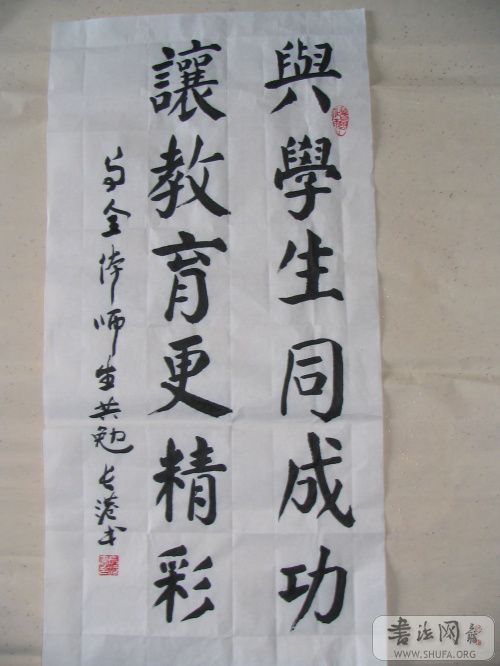 與學生同成功
讓教育更精彩
与全体师生共勉 长港书
书法网
WWW.SHUFA.ORG